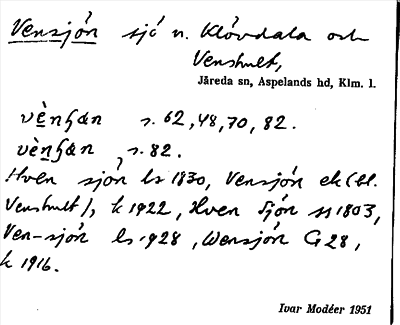 Vensjön sjö n. Klövdala och
Venshult,
Järeda sn, Aspelands hd, Klm. l.
vènɧɑn s. 62, 48, 70, 82.
vènɧɑn, s. 82.
Hven sjön ls 1830, Vensjön ek (bl.
Venshult), k 1922, Hven Sjön sn 1803,
Ven-sjön ls 1928, Wensjön G 28,
k 1916.
Ivar Modéer 1951